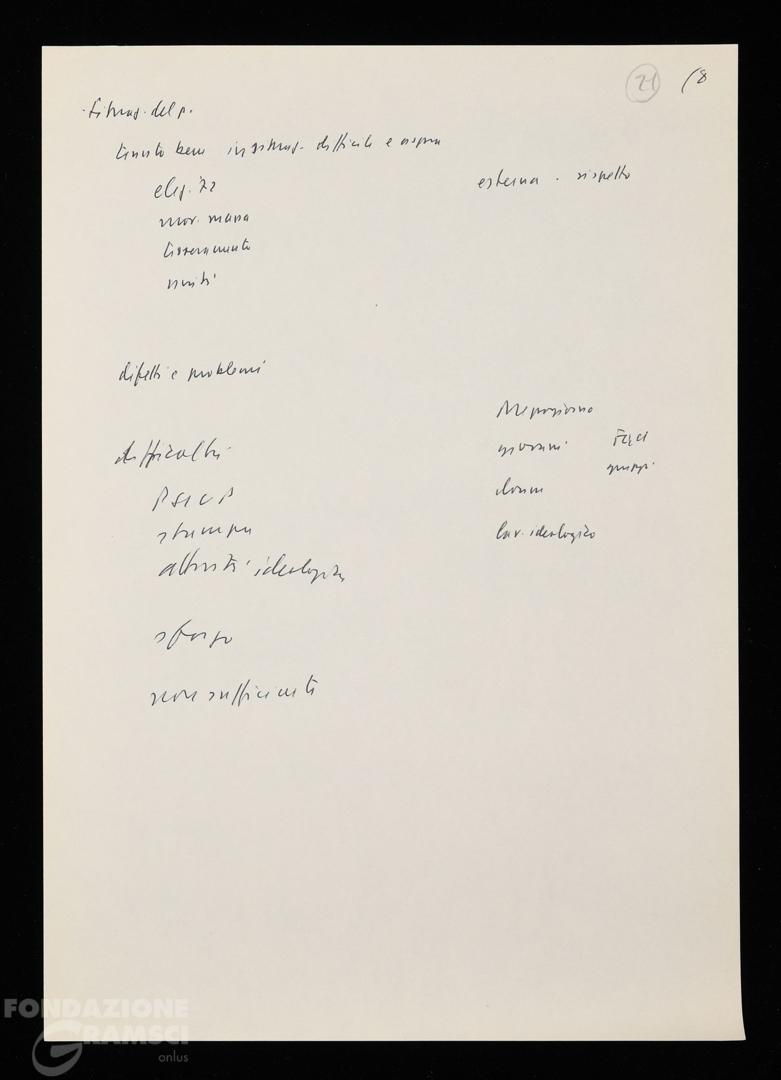 21 (8
Situaz. del p.
tenuto bene in situaz. difficile e aspra
elez. '72
esterna . rispetto
mov. massa
tesseramento
unità
difetti e problemi
Mezzogiorno
difficoltà
giovani FGCI
gruppi
PSIUP
donne
stampa
lav. ideologico
attività ideologica
sforzo
non sufficiente
FONDAZIONE
GRAMSCI
onlus